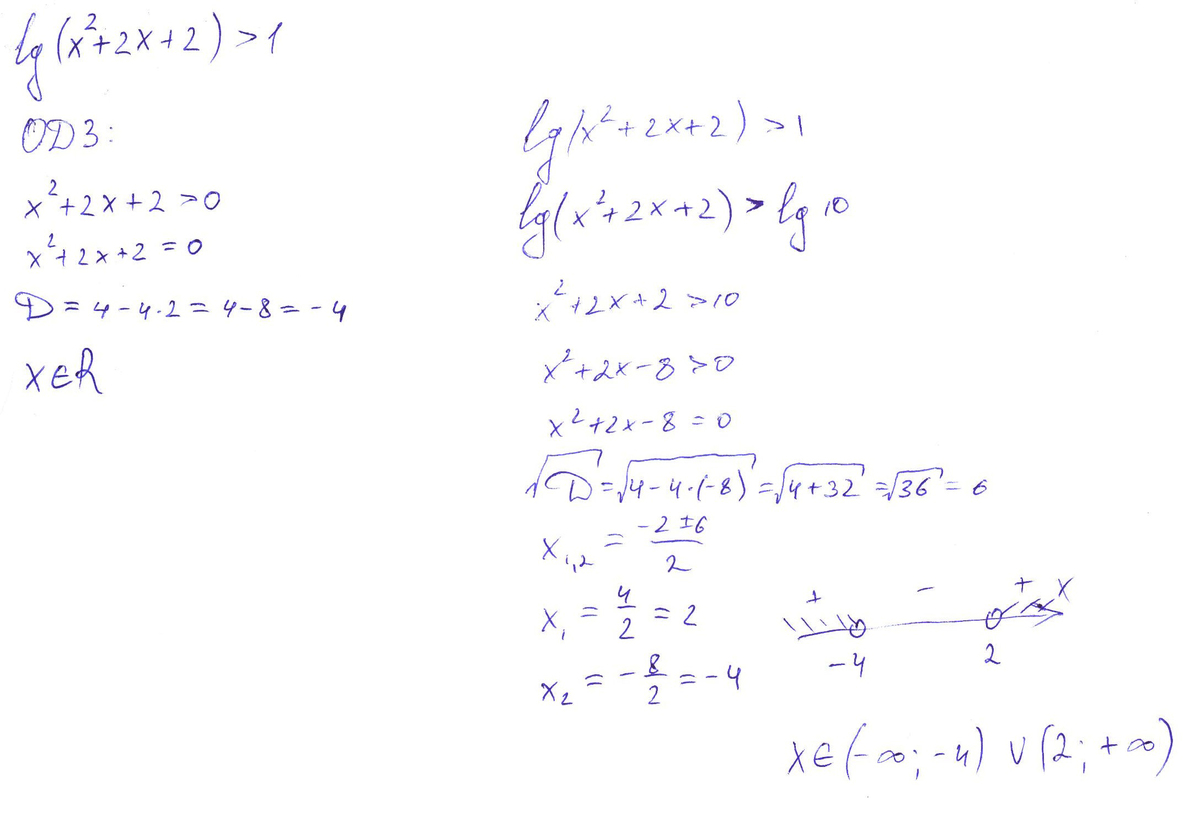 lg(x²+2x+2)>1
ОДЗ:
x²+2x+2>0
x²+2x+2=0
D=4-4·2=4-8=-4
x∈R
lg(x²+2x+2)>1
lg(x²+2x+2)>lg10
x²+2x+2>10
x²+2x-8>0
x²+2x-8=0
√D=√4-4·(-8)=√4+32=√36=6
x₁,₂=(-2±6)/2
x₁=4/2=2
x₂=-8/2=-4
+ - + x
-4 2
x∈(-∞;-4)∪(2;+∞)